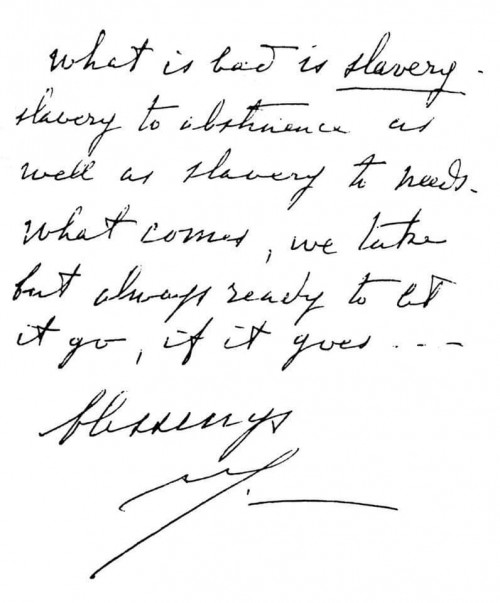 what is bad is slavery -
slavery to abstinence as
well as slavery to needs.
what comes, we take
but always ready to let
it go, if it goes ---
blessings
M. —